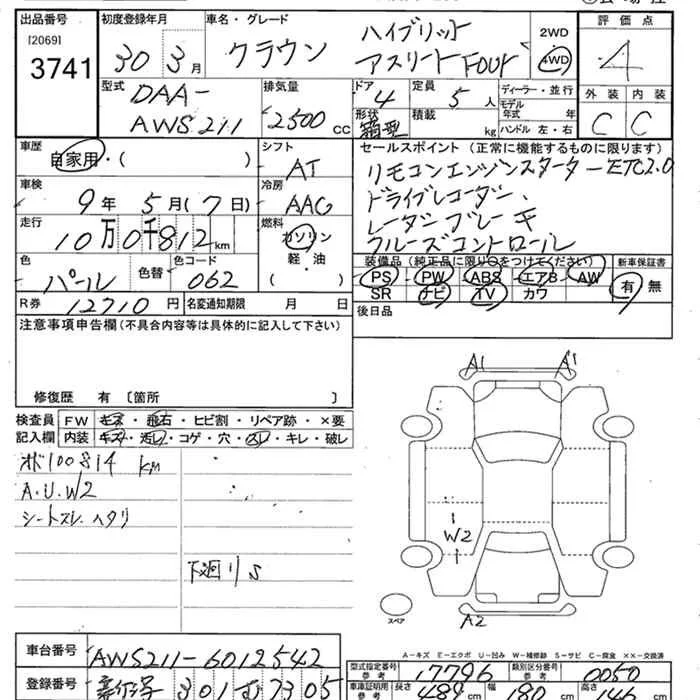 出品番号 初度登録年月 車名・グレード 2WD 評価点
[2069] 3741 30年 3月 クラウン ハイブリット アスリートFOUR 4WD 4
型式 排気量 ドア 定員 ディーラー・並行 外装 内装
DAA- AWS211 2500cc 4 5人 モデル年式 年 C C
形状 箱型 積載 kg ハンドル 左・右
車歴 シフト セールスポイント(正常に機能するものに限ります)
自家用・( ) AT リモコンエンジンスターター ETC2.0
車検 冷房 ドライブレコーダー、
9年 5月(7日) AAC レーダーブレーキ
走行 燃料 クルーズコントロール
10万0千812km ガソリン
色 色替 色コード 軽・油 装備品(純正品に限り○をつけてください) 新車保証書
パール 062 ( ) PS PW ABS エアB AW 有・無
R券 12710円 名変通知期限 月 日 SR ナビ TV カワ
注意事項申告欄(不具合内容等は具体的に記入して下さい) 後日品
修復歴 有 〔箇所 〕
A1 A1
検査員 FW キズ・飛石・ヒビ割・リペア跡・×要
記入欄 内装 キズ・汚レ・コゲ・穴・スレ・キレ・破レ
100814km
A.U.W2
シートスレ.ヘタリ
W2
下廻りS
スペア A2
A-キズ E-エクボ U-凹み W-補修跡 S-サビ C-腐食 ××-交換済
車台番号 AWS211-6012542 型式指定番号 参考 17796 類別区分番号 参考 0050
登録番号 301 む 7305 車庫証明用 参考 長さ 489cm 幅 180cm 高さ 146cm